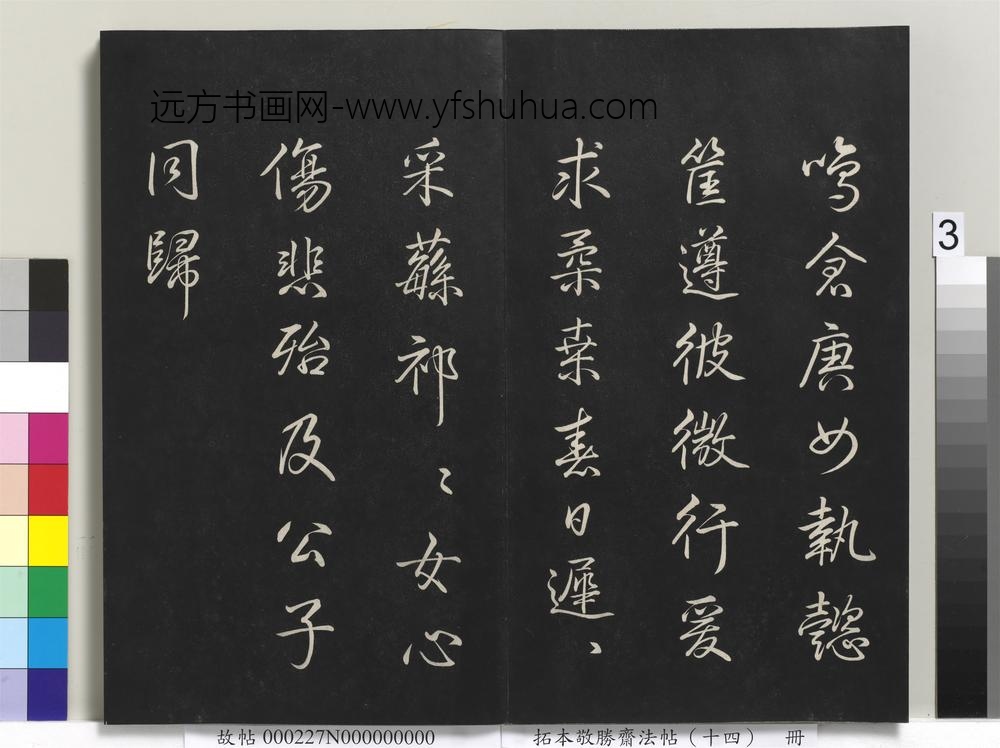 远方书画网-www.yfshuhua.com
鳴倉庚女執懿
筐遵彼微行爰
求柔桒春日遲丶
采蘩祁〻女心
傷悲殆及公子
同歸
3
故帖 000227N000000000
拓本敬勝齋法帖(十四) 冊